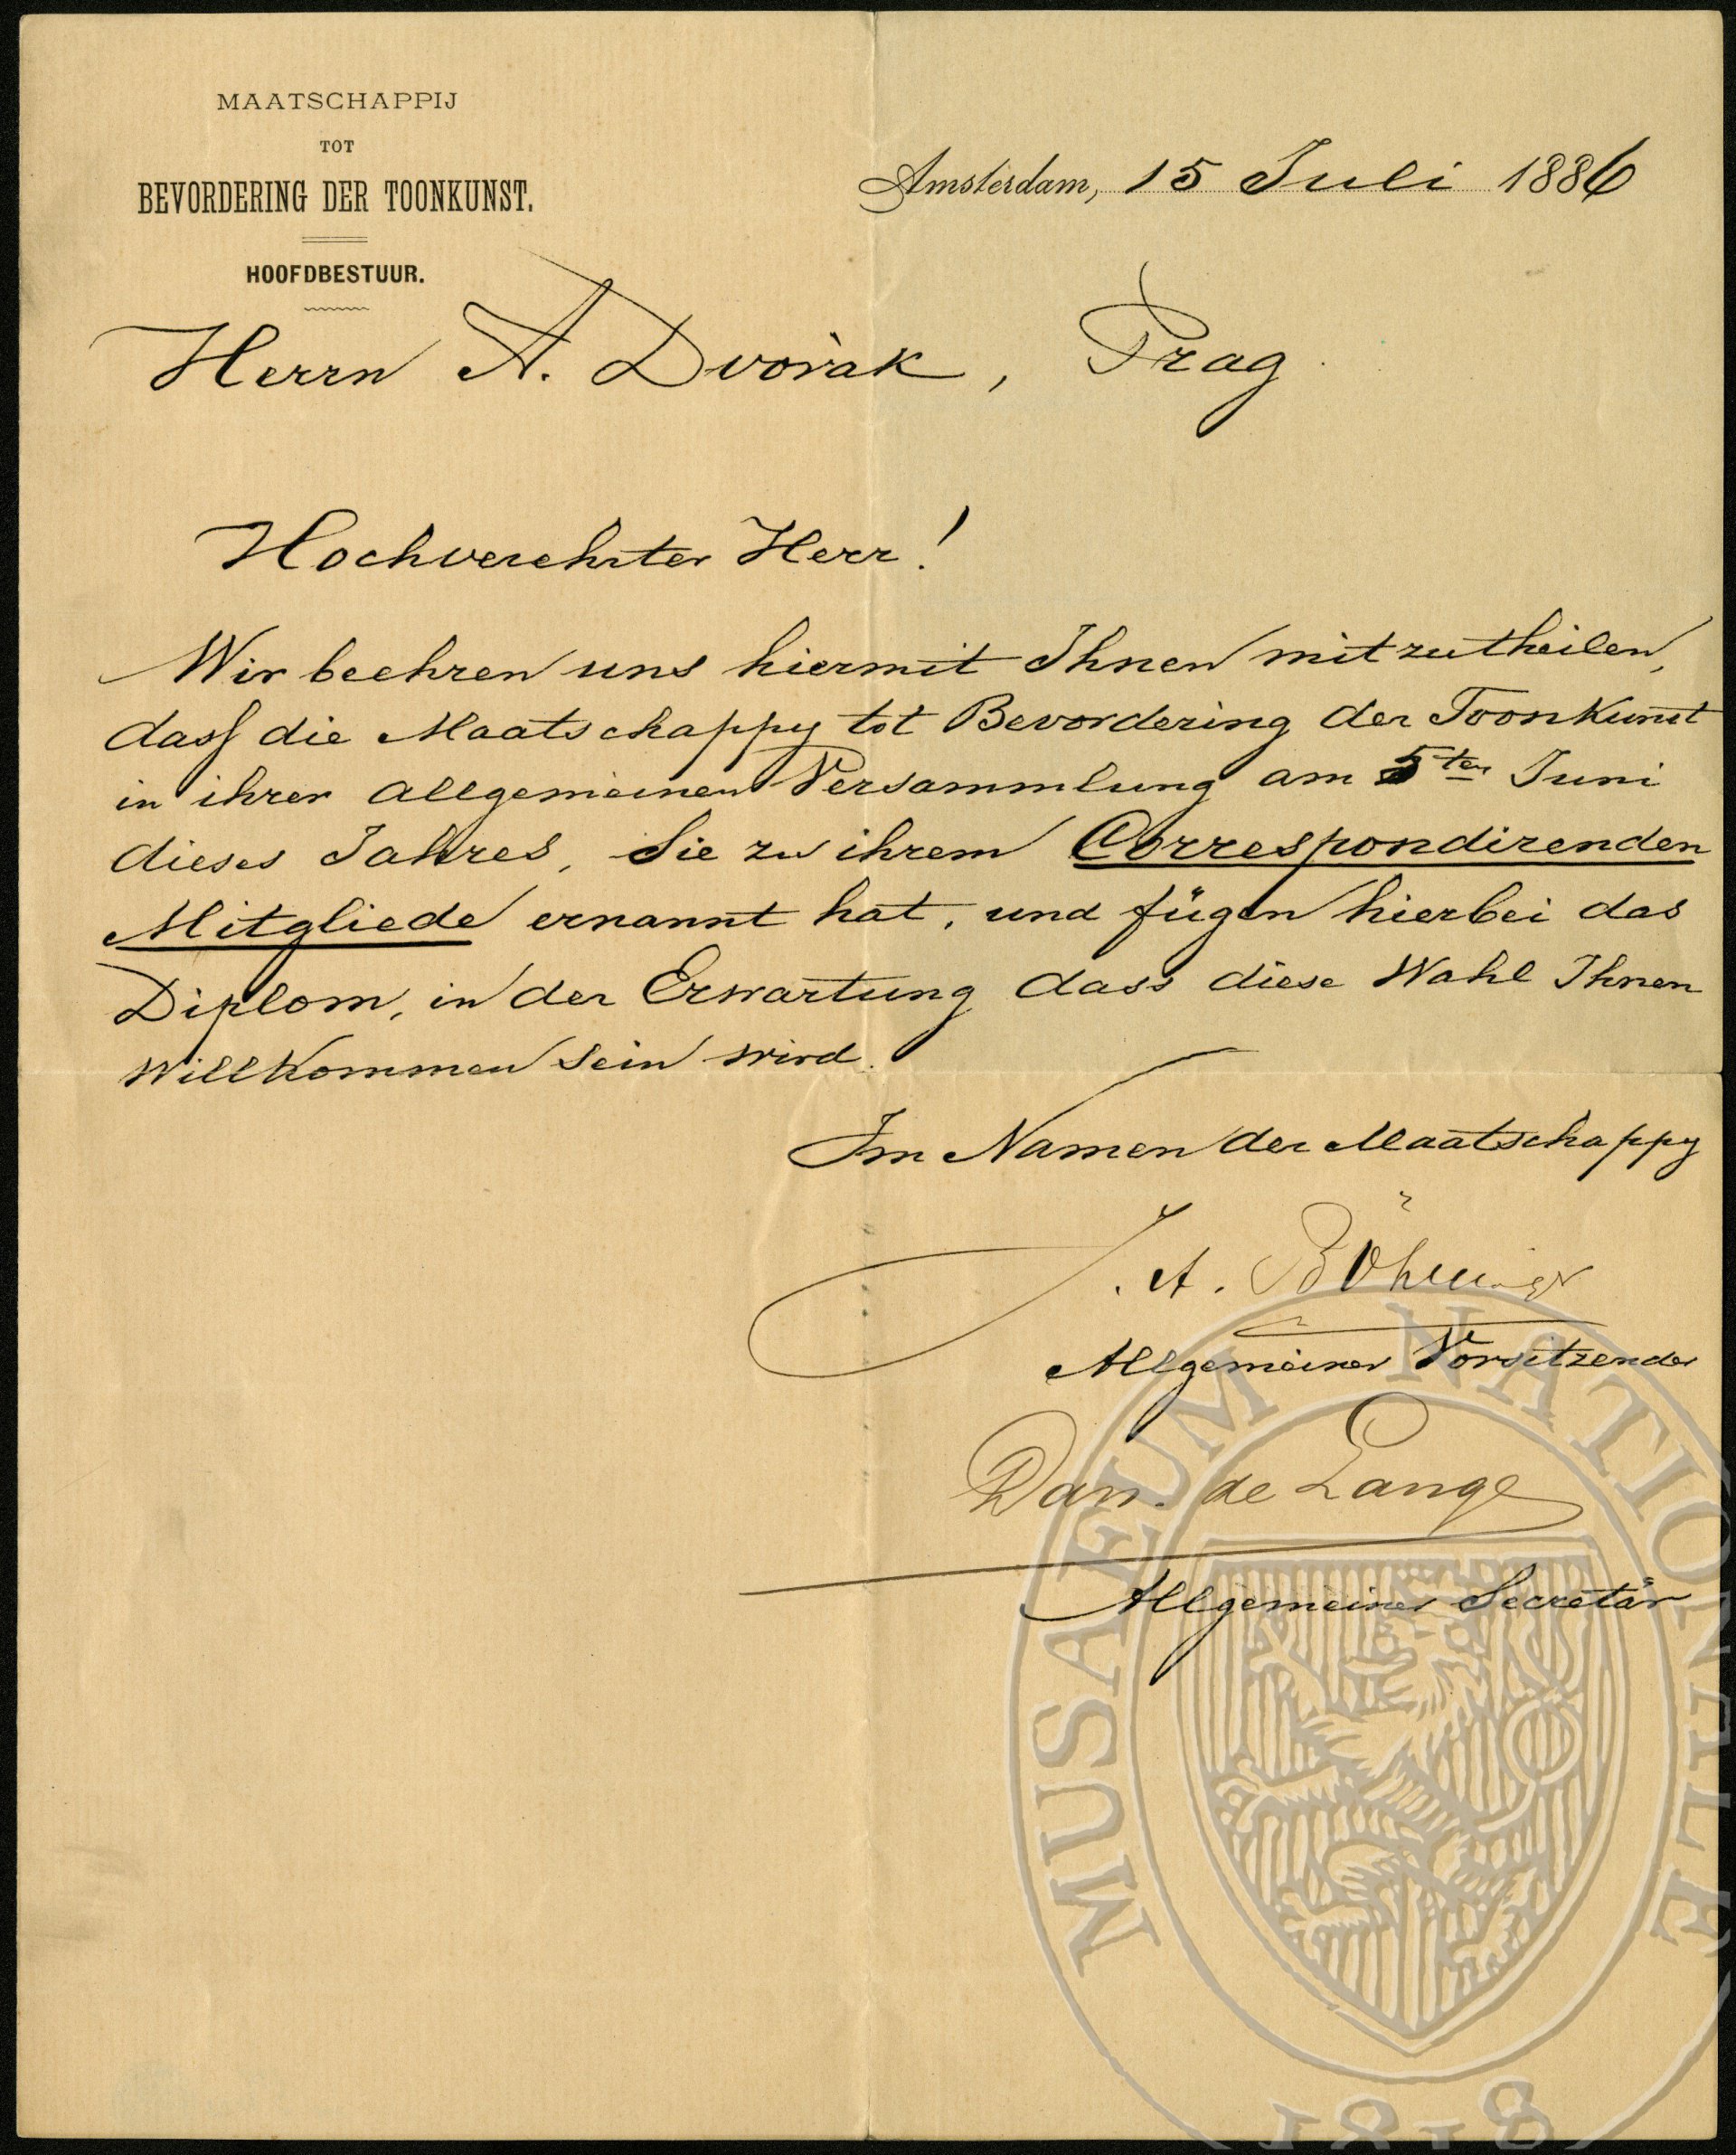 MAATSCHAPPIJ
TOT
BEVORDERING DER TOONKUNST.
HOOFDBESTUUR.
Amsterdam, 15 Juli 1886
Herrn A. Dvořák, Prag.
Hochverehrter Herr!
Wir beehren uns hiermit Ihnen mitzutheilen,
dass die Maatschappy tot Bevordering der Toonkunst
in ihrer allgemeinen Versammlung am 5ten Juni
dieses Jahres, Sie zu ihrem Correspondirenden
Mitgliede ernannt hat, und fügen hierbei das
Diplom, in der Erwartung dass diese Wahl Ihnen
willkommen sein wird.
Im Namen der Maatschappy
J. A.
Allgemeiner Vorsitzender
Dan. de Lange
Allgemeiner Secretär
MUSAEUM NATIONALE
1818